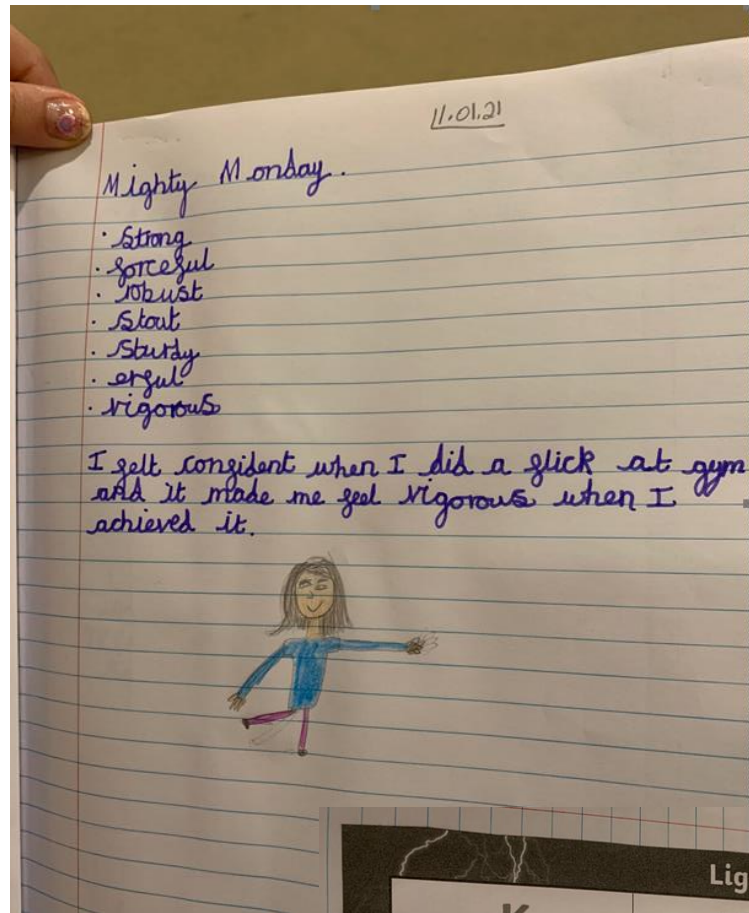 11.01.21
Mighty Monday.
· Strong
· forceful
· robust
· Stout
· Sturdy
· erful
· vigorous
I felt confident when I did a flick at gym
and it made me feel vigorous when I
achieved it.
Lig
K